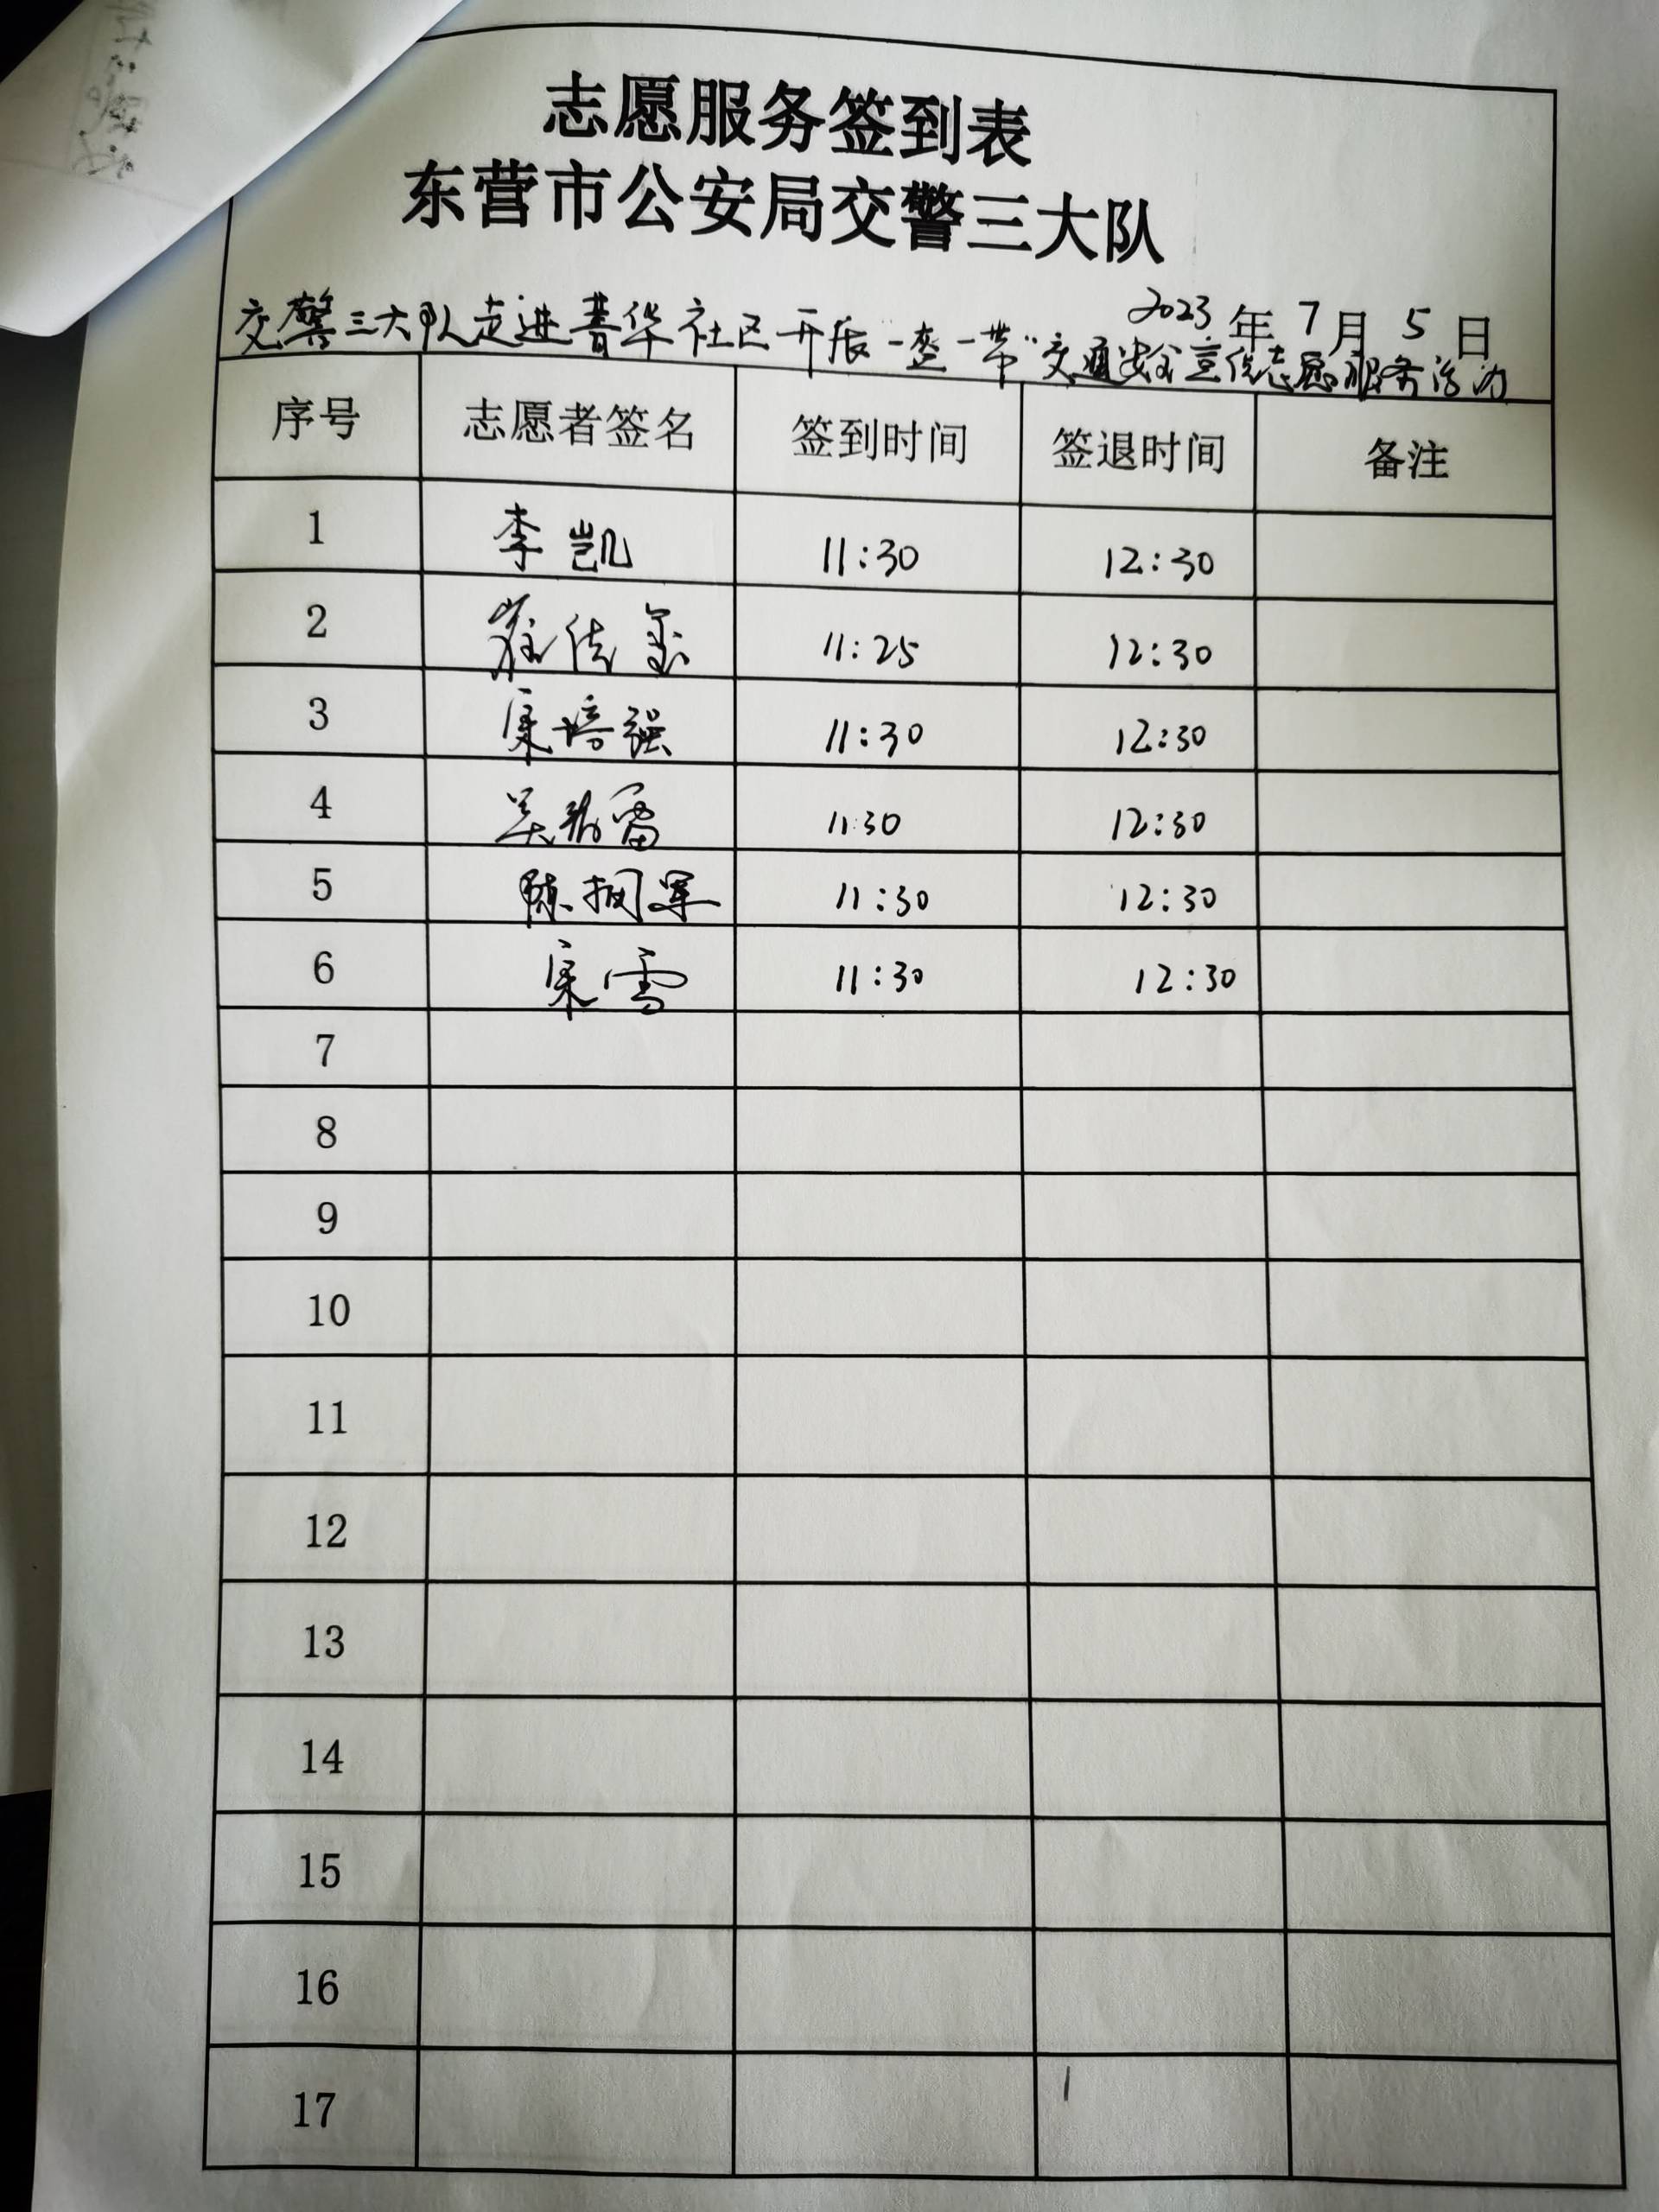 志愿服务签到表
东营市公安局交警三大队
2023年7月5日
交警三大队走进菁华社区开展"一盔一带"交通安全宣传志愿服务活动
序号 志愿者签名 签到时间 签退时间 备注
1 李凯 11:30 12:30
2 11:25 12:30
3 宋培强 11:30 12:30
4 吴 雷 11:30 12:30
5 陈拥军 11:30 12:30
6 宋雪 11:30 12:30
7
8
9
10
11
12
13
14
15
16
17